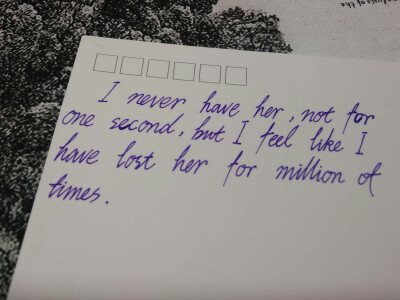 I never have her, not for
one second, but I feel like I
have lost her for million of
times.